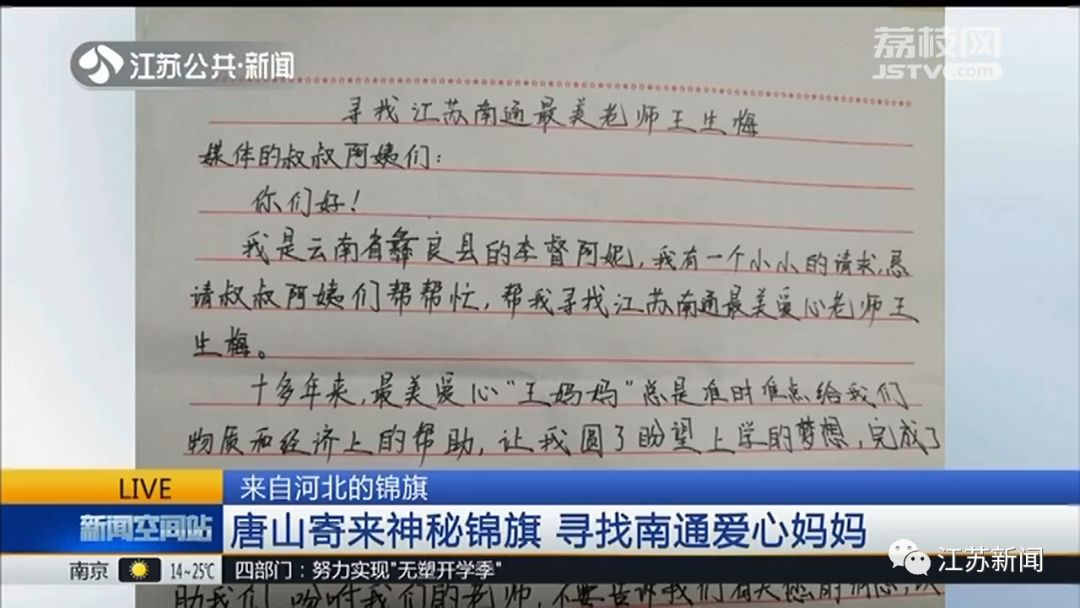 江苏公共·新闻
荔枝网
JSTVC.COM
寻找江苏南通最美老师王生梅
媒体的叔叔阿姨们：
你们好！
我是云南省彝良县的李督阿妮，我有一个小小的请求，恳
请叔叔阿姨们帮帮忙，帮我寻找江苏南通最美爱心老师王
生梅。
十多年来，最美爱心“王妈妈”总是准时准点给我们
物质和经济上的帮助，让我圆了盼望上学的梦想，完成了
LIVE
来自河北的锦旗
新闻空间站
唐山寄来神秘锦旗 寻找南通爱心妈妈
江苏新闻
南京
14~25℃
四部门：努力实现"无塑开学季"
助我们 吩咐我们的老师，不要告诉我们有关您的消息，